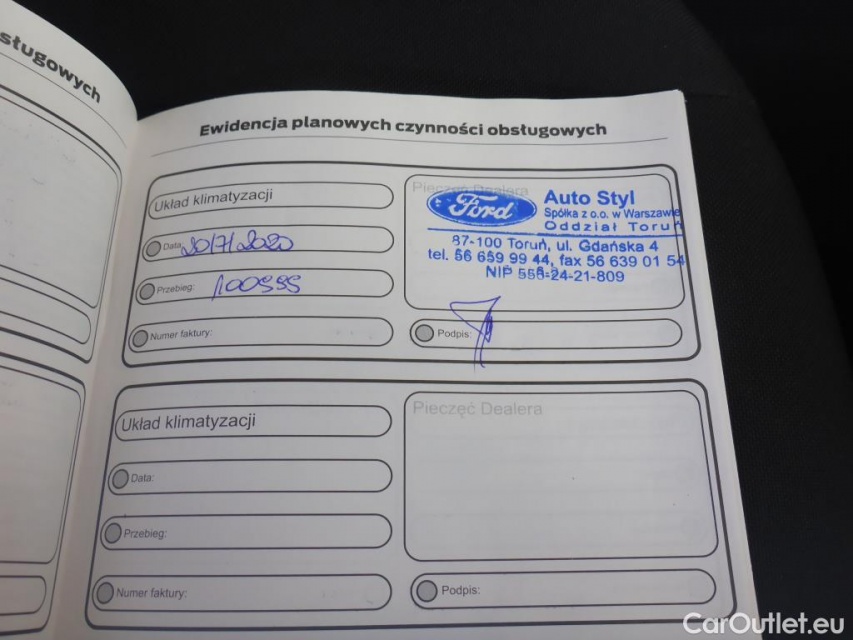 sługowych
Ewidencja planowych czynności obsługowych
Układ klimatyzacji
Pieczęć Dealera
Ford
Auto Styl
Spółka z o.o. w Warszawie
Oddział Toruń
87-100 Toruń, ul. Gdańska 4
tel. 56 659 99 44, fax 56 639 01 54
Data: 20/7/2020
Przebieg:
Numer faktury:
Podpis:
Układ klimatyzacji
Pieczęć Dealera
Data:
Przebieg:
Numer faktury:
Podpis:
CarOutlet.eu